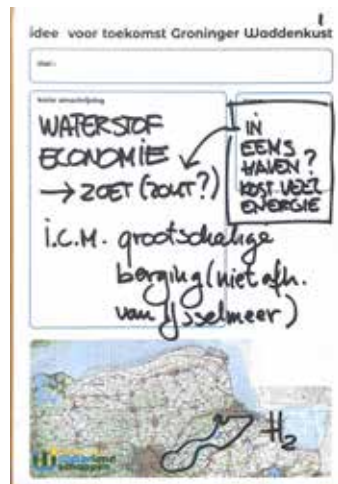 1
idee voor toekomst Groninger Waddenkust
titel:
korte omschrijving
WATERSTOF
ECONOMIE
→ ZOET (ZOUT?)
IN
EEMS
HAVEN?
KOST VEEL
ENERGIE
i.c.m. grootschalige
berging (niet afh.
van IJsselmeer)
H2